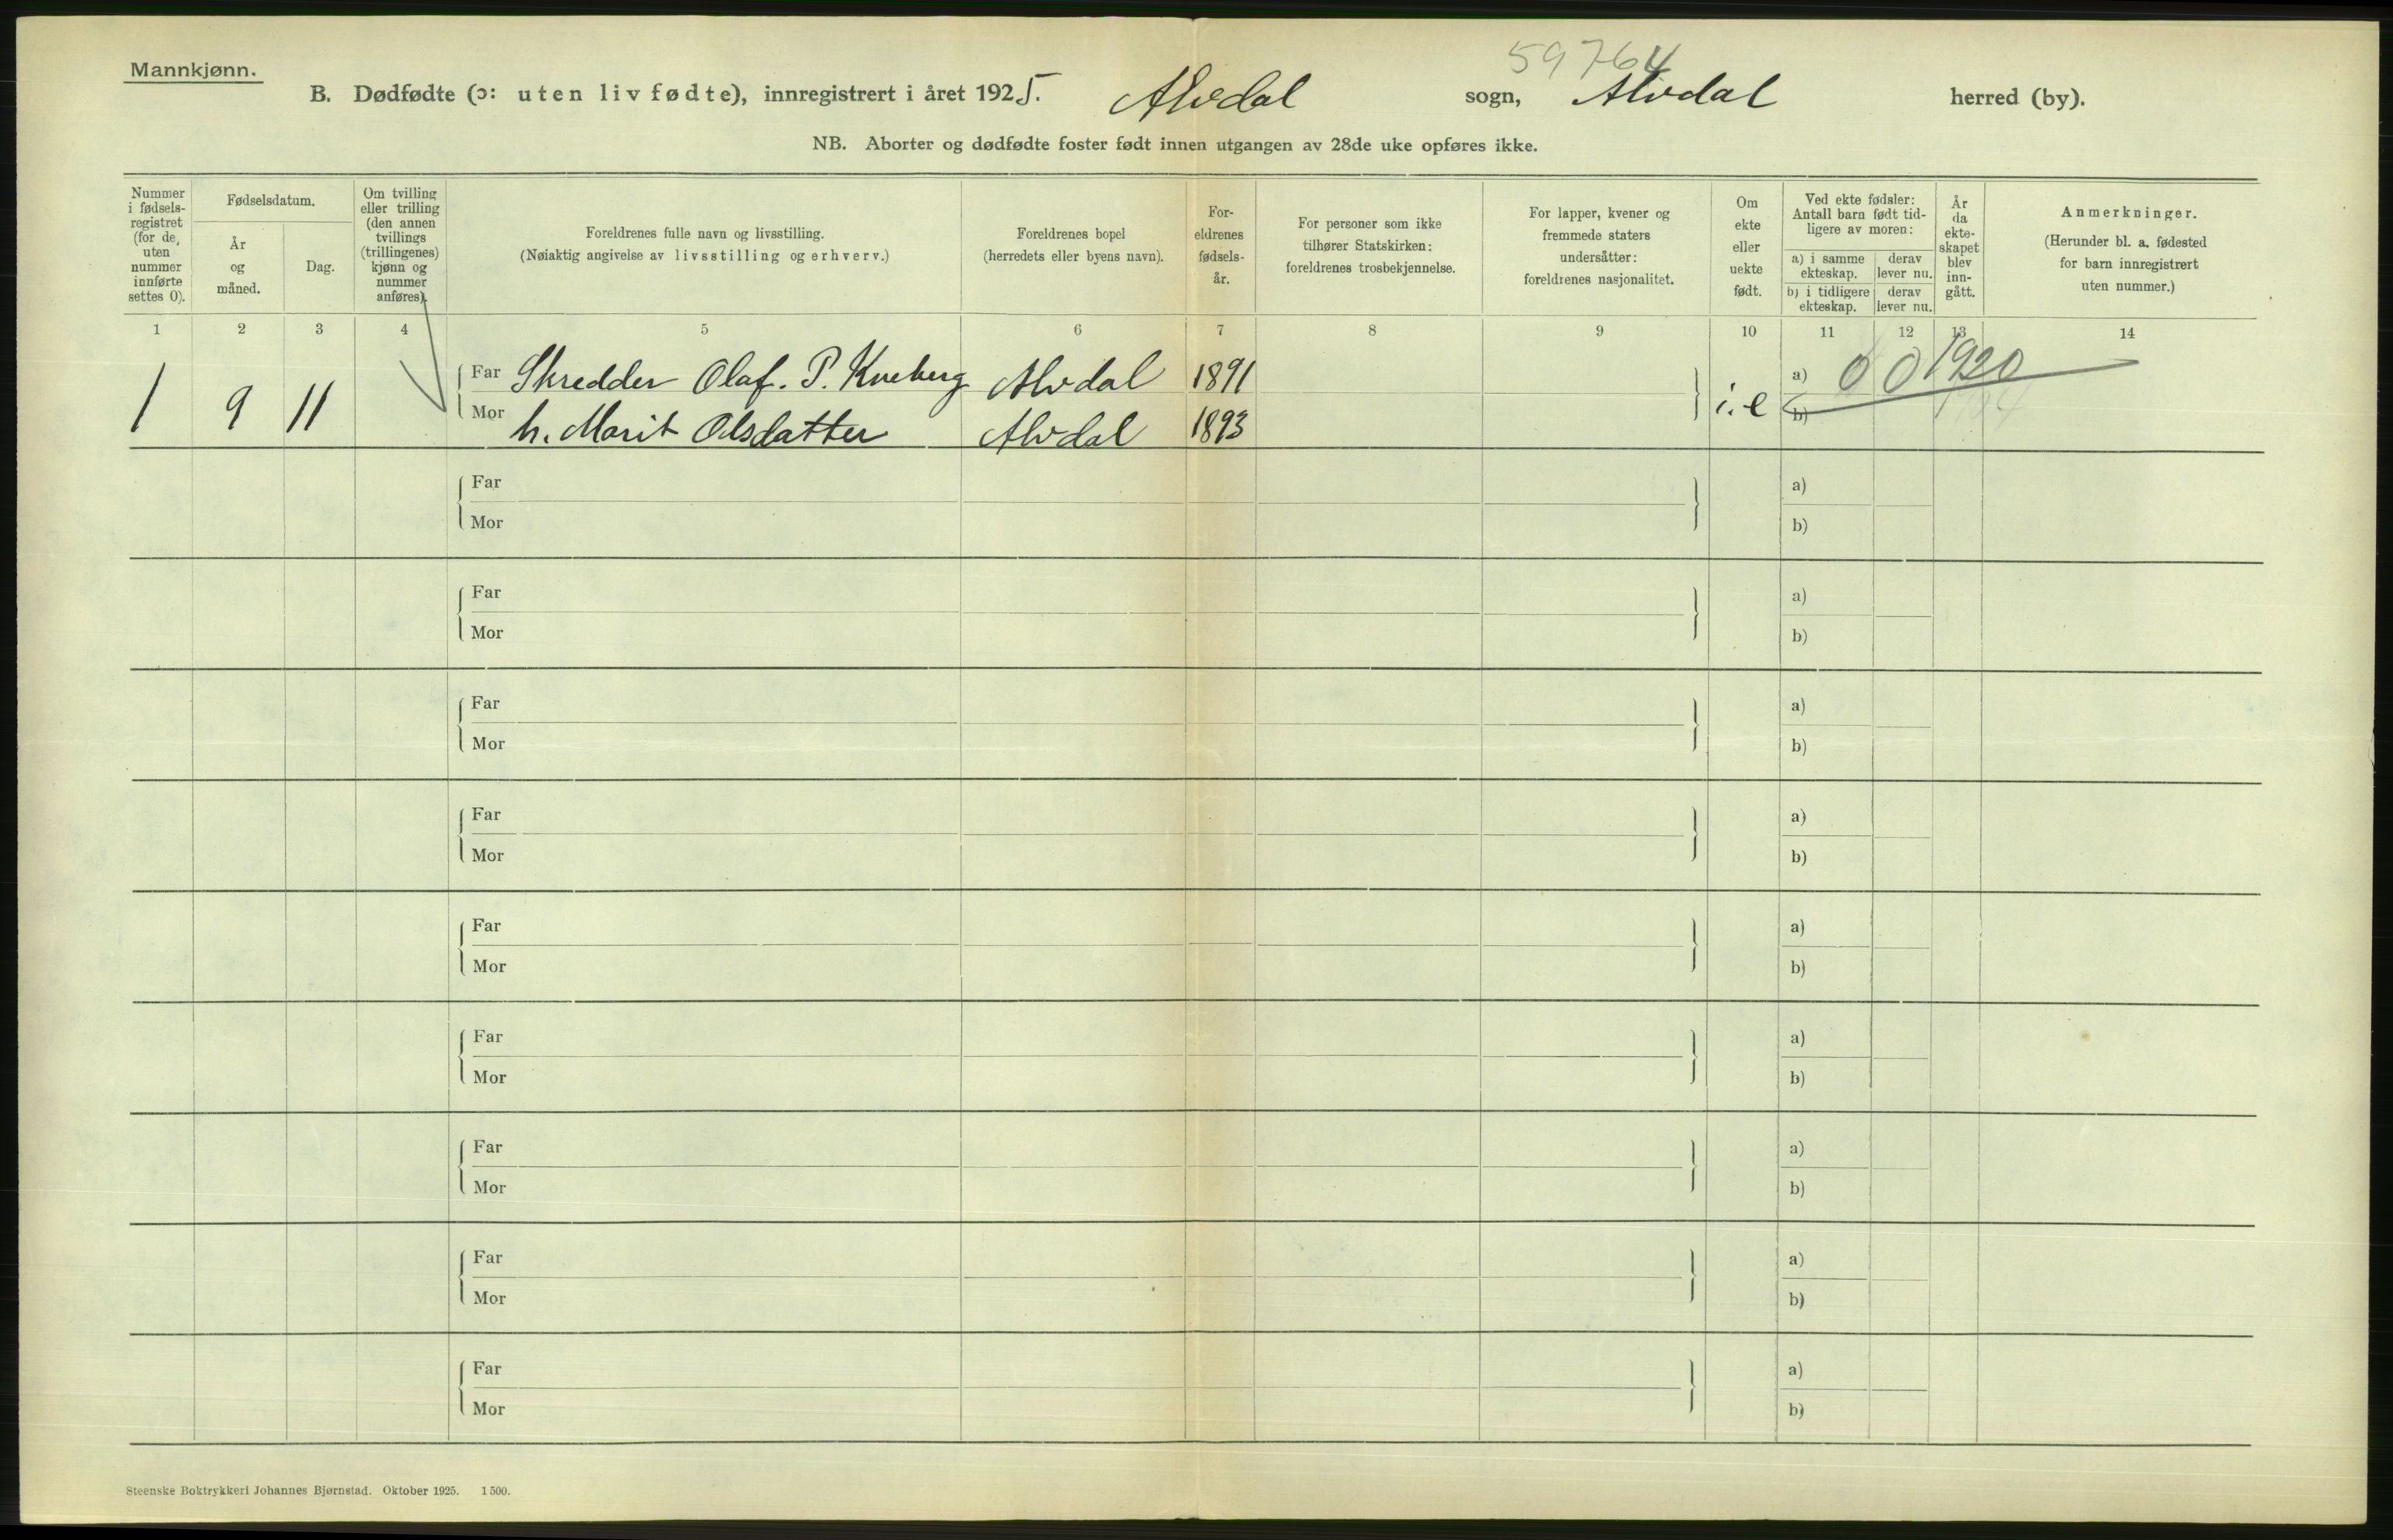 59764
Mannkjønn.
B. Dødfødte (ɔ: uten liv fødte), innregistrert i året 1925. Alvdal sogn, Alvdal herred (by).
NB. Aborter og dødfødte foster født innen utgangen av 28de uke opføres ikke.
Nummer
i fødsels-
registret
(for de,
uten
nummer
innførte
settes 0).
Fødselsdatum.
År
og
måned.
Dag.
Om tvilling
eller trilling
(den annen
tvillings
(trillingenes)
kjønn og
nummer
anføres).
Foreldrenes fulle navn og livsstilling.
(Nøiaktig angivelse av livsstilling og erhverv.)
Foreldrenes bopel
(herredets eller byens navn).
For-
eldrenes
fødsels-
år.
For personer som ikke
tilhører Statskirken:
foreldrenes trosbekjennelse.
For lapper, kvener og
fremmede staters
undersåtter:
foreldrenes nasjonalitet.
Om
ekte
eller
uekte
født.
Ved ekte fødsler:
Antall barn født tid-
ligere av moren:
a) i samme
ekteskap.
derav
lever nu.
b) i tidligere
ekteskap.
derav
lever nu.
År
da
ekte-
skapet
blev
inn-
gått.
Anmerkninger.
(Herunder bl. a. fødested
for barn innregistrert
uten nummer.)
1 2 3 4 5 6 7 8 9 10 11 12 13 14
Far Skredder Olaf. P. Kveberg Alvdal 1891 a) 0 0 1920
1 9 11 i.e
Mor h. Marit Olsdatter Alvdal 1893 b)
Far a)
Mor b)
Far a)
Mor b)
Far a)
Mor b)
Far a)
Mor b)
Far a)
Mor b)
Far a)
Mor b)
Far a)
Mor b)
Far a)
Mor b)
Far a)
Mor b)
Steenske Boktrykkeri Johannes Bjørnstad. Oktober 1925. 1500.